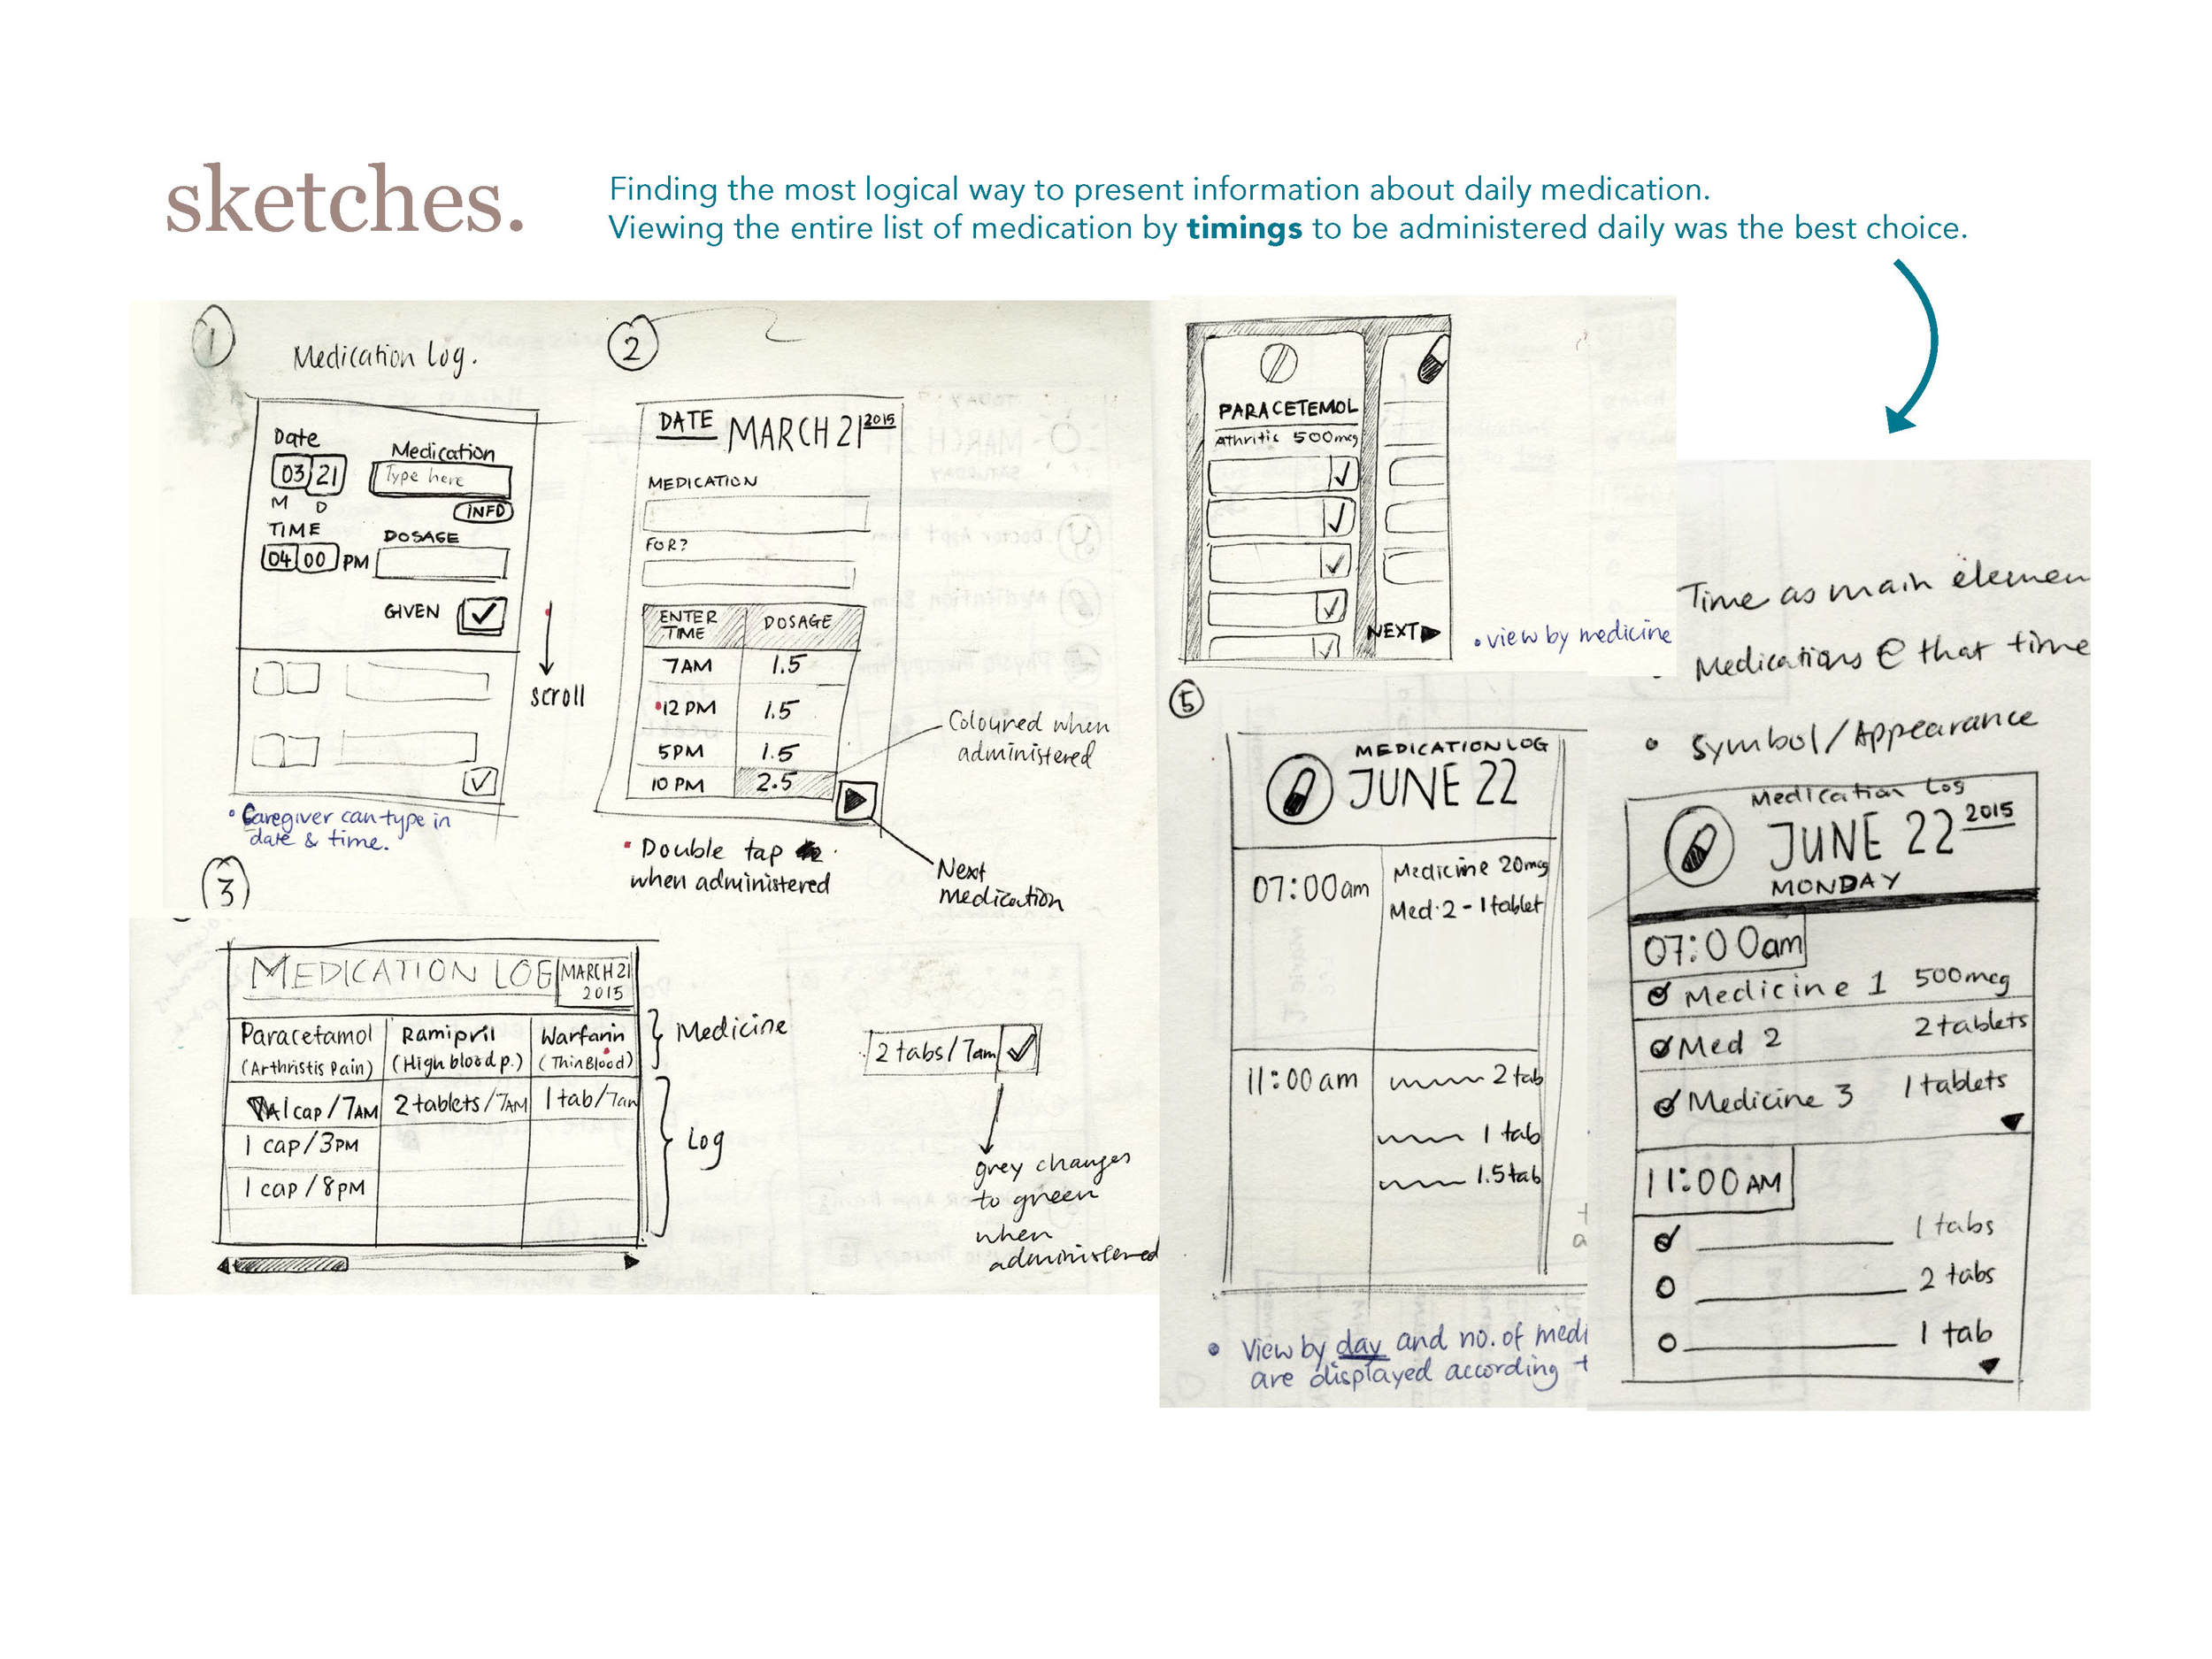 sketches.
Finding the most logical way to present information about daily medication.
Viewing the entire list of medication by timings to be administered daily was the best choice.
1
Medication log.
Date
03 21
M D
Medication
Type here
INFO
TIME
04 00 PM
DOSAGE
GIVEN
scroll
• Caregiver can type in
date & time.
2
DATE MARCH 21 2015
MEDICATION
FOR?
ENTER TIME DOSAGE
7AM 1.5
12 PM 1.5
5PM 1.5
10 PM 2.5
Coloured when
administered
• Double tap
when administered
Next
Medication
3
MEDICATION LOG MARCH 21
2015
Paracetamol Ramipril Warfarin
(Arthristis Pain) (High blood p.) (Thin Blood)
1 cap / 7AM 2 tablets / 7AM 1 tab / 7am
1 cap / 3PM
1 cap / 8PM
Medicine
Log
2 tabs / 7am
grey changes
to green
when
administered
PARACETEMOL
Athritis 500mcg
NEXT
• view by medicine
5
MEDICATION LOG
JUNE 22
07:00am Medicine 20mcg
Med·2 - 1 tablet
11:00am 2 tab
1 tab
1.5 tab
• View by day and no. of medi
are displayed according t
Time as main elemen
Medications @ that time
• Symbol/Appearance
Medication Log
JUNE 22 2015
MONDAY
07:00am
Medicine 1 500mcg
Med 2 2 tablets
Medicine 3 1 tablets
11:00 AM
1 tabs
2 tabs
1 tab